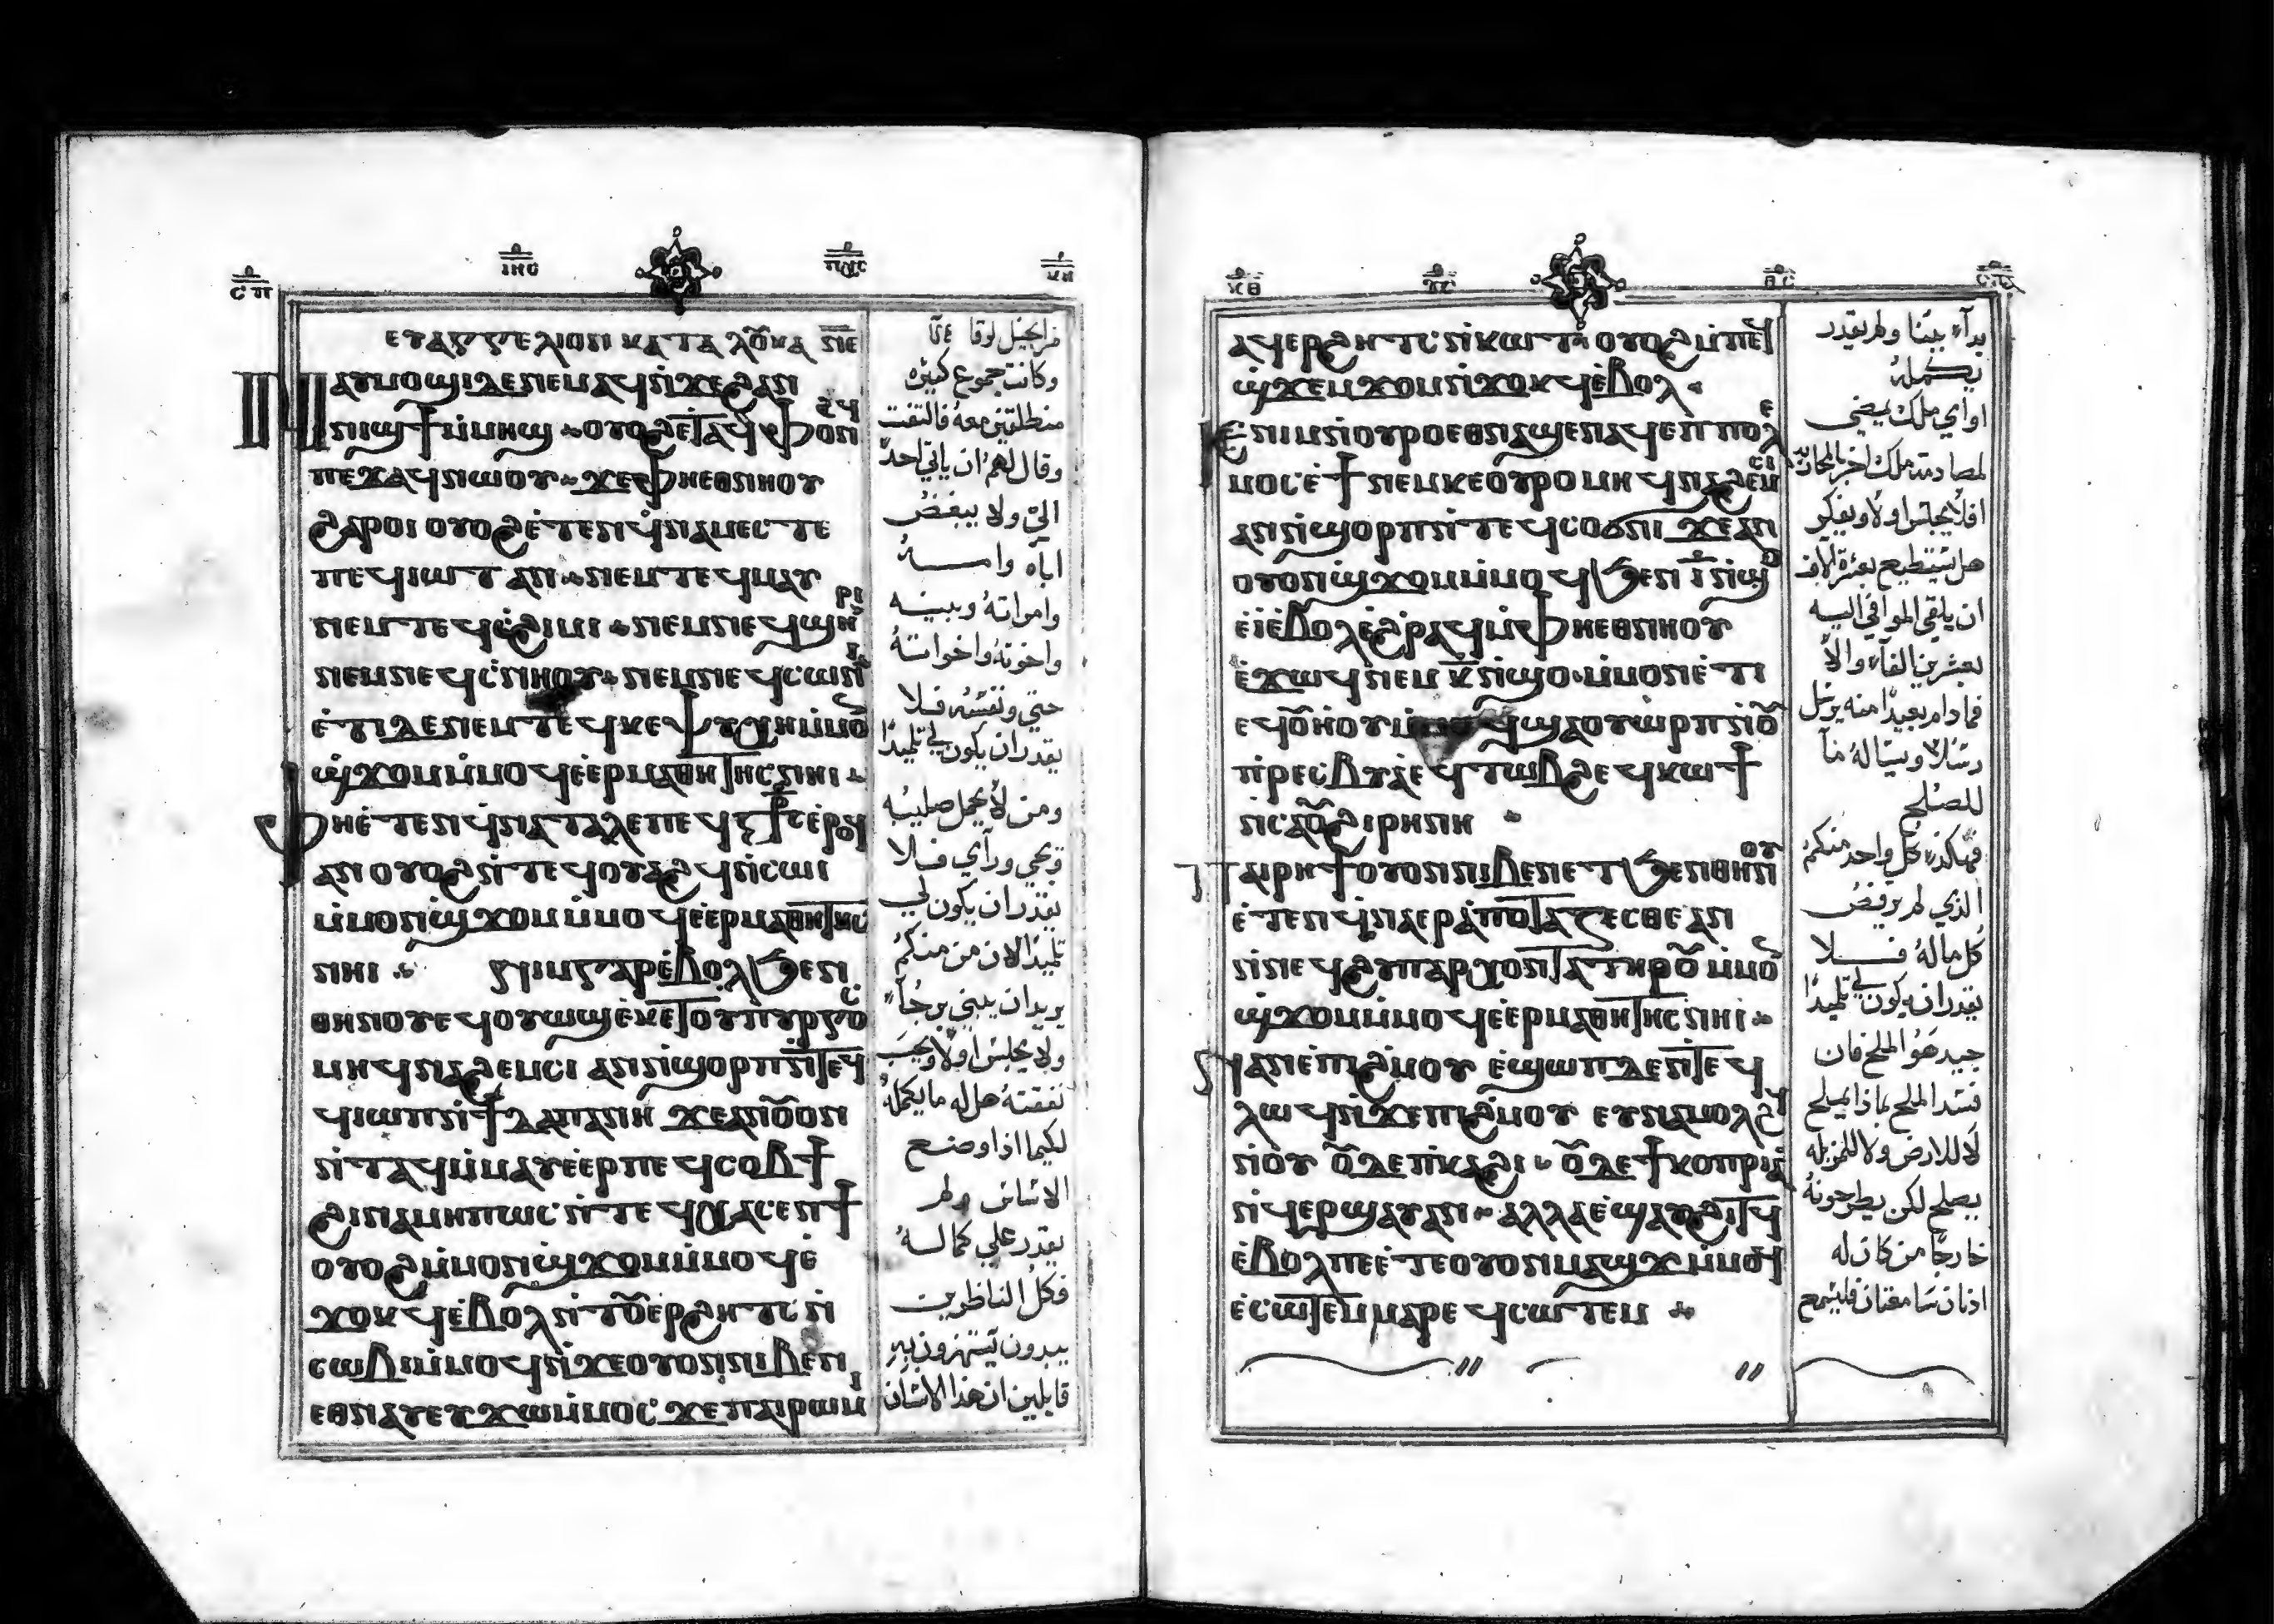 ⲉⲩⲁⲅⲅⲉⲗⲓⲟⲛ ⲕⲁⲧⲁ ⲗⲟⲩⲕⲁ ⲛⲉ
ⲛⲁⲩⲙⲟϣⲓ ⲇⲉ ⲛⲉⲙⲁϥ ⲛ̀ϫⲉ ϩⲁⲛ
ⲛⲓϣϯ ⲙ̀ⲙⲏϣ ⲟⲩⲟϩ ⲉⲧⲁϥⲫⲟⲛϩϥ
ⲡⲉϫⲁϥ ⲛⲱⲟⲩ ϫⲉ ⲫⲏ ⲉⲑⲛⲏⲟⲩ
ϩⲁⲣⲟⲓ ⲟⲩⲟϩ ⲉ̀ⲧⲉ ⲛϥ̀ⲛⲁⲙⲉⲥⲧⲉ
ⲡⲉϥⲓⲱⲧ ⲁⲛ ⲛⲉⲙ ⲧⲉϥⲙⲁⲩ
ⲛⲉⲙ ⲧⲉϥⲥ̀ϩⲓⲙⲓ ⲛⲉⲙ ⲛⲉϥϣⲏⲣⲓ
ⲛⲉⲙ ⲛⲉϥⲥ̀ⲛⲏⲟⲩ ⲛⲉⲙ ⲛⲉϥⲥⲱⲛⲓ
ⲉ̀ⲧⲓ ⲇⲉ ⲛⲉⲙ ⲧⲉϥⲕⲉⲯⲩⲭⲏ ⲙ̀ⲙⲟⲛ
ϣ̀ϫⲟⲙ ⲙ̀ⲙⲟϥ ⲉ̀ⲉⲣⲙⲁⲑⲏⲧⲏⲥ ⲛⲏⲓ
ⲫⲏ ⲉ̀ⲧⲉ ⲛϥ̀ⲛⲁⲧⲁⲗⲉ ⲡⲉϥⲥϯⲥ ⲉ̀ⲣⲟϥ
ⲁⲛ ⲟⲩⲟϩ ⲛ̀ⲧⲉϥⲟⲩⲁϩϥ ⲛ̀ⲥⲱⲓ
ⲙ̀ⲙⲟⲛ ϣ̀ϫⲟⲙ ⲙ̀ⲙⲟϥ ⲉ̀ⲉⲣⲙⲁⲑⲏⲧⲏⲥ
ⲛⲏⲓ ⲛⲓⲙ ⲅⲁⲣ ⲉ̀ⲃⲟⲗ ϧⲉⲛ
ⲑⲏⲛⲟⲩ ⲉϥⲟⲩⲱϣ ⲉ̀ⲕⲉⲧ ⲟⲩⲡⲩⲣⲅⲟⲥ
ⲙⲏ ϥⲛⲁϩⲉⲙⲥⲓ ⲁⲛ ⲛ̀ϣⲟⲣⲡ ⲛ̀ⲧⲉϥ
ϥⲓⲱⲡ ⲛ̀ϯⲇⲁⲡⲁⲛⲏ ϫⲉ ⲁⲛ ⲟⲩⲟⲛ
ⲛ̀ⲧⲁϥ ⲙ̀ⲙⲁⲩ ⲉ̀ⲉⲣⲡⲉϥⲥⲟⲃϯ
ϩⲓⲛⲁ ⲙⲏⲡⲱⲥ ⲛ̀ⲧⲉϥⲭⲁⲥⲉⲛϯ
ⲟⲩⲟϩ ⲙ̀ⲙⲟⲛ ϣ̀ϫⲟⲙ ⲙ̀ⲙⲟϥ ⲉ̀
ϫⲟⲕϥ ⲉ̀ⲃⲟⲗ ⲛ̀ⲧⲟⲩⲉⲣϩⲏⲧⲥ ⲛ̀
ⲥⲱⲃⲓ ⲙ̀ⲙⲟϥ ⲛ̀ϫⲉ ⲟⲩⲟⲛ ⲛⲓⲃⲉⲛ
ⲉⲑⲛⲁⲩ ⲉⲩϫⲱ ⲙ̀ⲙⲟⲥ ϫⲉ ⲡⲁⲓⲣⲱⲙⲓ
من انجيل لوقا
وكانت جموع كثيره
منطلقين معهُ فالتفت
وقال لهم ان ياتي احدٌ
اليّ ولا يبغضُ
اباه وامـهُ
وامراتهُ وبنيـه
واخوتهُ واخواتهُ
حتي ونفسهُ فـلا
يقدر ان يكون لي تلميذًا
ومن لا يحمل صليبُه
ويجي ورآي فـلا
يقدر ان يكون لي
تلميذًا لان من منكمُ
يريد ان يبني برجُاً
ولا يجلس اولا ويحسب
نفقتهُ هل له ما يكملهُ
لكيما اذا وضـع
الاساس ولم
يقدر علي كمالـهُ
فكلُ الناظرين
يبدون يستهزون بهِ
قايلين ان هذا الانسان
ⲁϥⲉⲣϩⲏⲧⲥ ⲛ̀ⲕⲱⲧ ⲟⲩⲟϩ ⲙ̀ⲡⲉϥ
ϣ̀ϫⲉⲙϫⲟⲙ ⲛ̀ϫⲟⲕϥ ⲉ̀ⲃⲟⲗ
ⲓⲉ ⲛⲓⲙ ⲛ̀ⲟⲩⲣⲟ ⲉⲑⲛⲁϣⲉⲛⲁϥ ⲉ̀ⲡⲡⲟⲗⲉ
ⲙⲟⲥ ⲉ̀ϯ ⲛⲉⲙ ⲕⲉⲟⲩⲣⲟ ⲙⲏ ϥⲛⲁϩⲉⲙⲥⲓ
ⲁⲛ ⲛ̀ϣⲟⲣⲡ ⲛ̀ⲧⲉϥⲥⲟϭⲛⲓ ϫⲉ ⲁⲛ
ⲟⲩⲟⲛ ϣ̀ϫⲟⲙ ⲙ̀ⲙⲟϥ ϧⲉⲛ ⲓ̅ ⲛ̀ϣⲟ
ⲉ̀ⲓ ⲉ̀ⲃⲟⲗ ⲉ̀ϩⲣⲁϥ ⲙ̀ⲫⲏ ⲉⲑⲛⲏⲟⲩ
ⲉ̀ϫⲱϥ ⲛⲉⲙ ⲕ̅ ⲛ̀ϣⲟ ⲙ̀ⲙⲟⲛ ⲉ̀ⲧⲓ
ⲉϥⲟⲩⲏⲟⲩ ⲙ̀ⲙⲟϥ ϣⲁϥⲟⲩⲱⲣⲡ ⲛ̀ⲟⲩ
ⲡ̀ⲣⲉⲥⲃⲩⲁ̀ ⲉϥⲧⲱⲃϩ ⲉϥⲕⲱϯ
ⲛ̀ⲥⲁ ⲟⲩϩⲓⲣⲏⲛⲏ
ⲡⲁⲓⲣⲏϯ ⲟⲩⲟⲛ ⲛⲓⲃⲉⲛ ⲉⲧϧⲉⲛ ⲑⲏⲛⲟⲩ
ⲉ̀ⲧⲉ ⲛϥ̀ⲛⲁⲉⲣⲁ̀ⲡⲟⲧⲁⲍⲉⲥⲑⲉ ⲁⲛ
ⲛ̀ⲛⲉϥϩⲩⲡⲁⲣⲭⲟⲛⲧⲁ ⲧⲏⲣⲟⲩ ⲙ̀ⲙⲟⲛ
ϣ̀ϫⲟⲙ ⲙ̀ⲙⲟϥ ⲉ̀ⲉⲣⲙⲁⲑⲏⲧⲏⲥ ⲛⲏⲓ
ⲛⲁⲛⲉ ⲡⲓϩⲙⲟⲩ ⲉ̀ϣⲱⲡ ⲇⲉ ⲛ̀ⲧⲉϥ
ⲗⲱϥ ⲛ̀ϫⲉ ⲡⲓϩⲙⲟⲩ ⲉⲩⲛⲁⲙⲟⲗϩϥ
ⲛ̀ⲟⲩ ⲟⲩⲇⲉ ⲡ̀ⲕⲁϩⲓ ⲟⲩⲇⲉ ϯⲕⲟⲡⲣⲓⲁ
ⲛ̀ϥⲉⲣϣⲁⲩ ⲁⲛ ⲁⲗⲗⲁ ⲉ̀ϣⲁⲩϩⲓⲧϥ
ⲉ̀ⲃⲟⲗ ⲡⲉ ⲉ̀ⲧⲉ ⲟⲩⲟⲛ ⲙⲁϣϫ ⲙ̀ⲙⲟϥ
ⲉ̀ⲥⲱⲧⲉⲙ ⲙⲁⲣⲉϥⲥⲱⲧⲉⲙ
بدآء يبتنا ولم يقدر
يكملهُ
او اي ملك يمضي
لمصادمة ملك اخر بالمحاربه
افلا يجلس اولا ويفكر
هل يستطيع بعشرة الاف
ان يلقي الموافي اليـه
بعشرين الفآء والاّ
فما دام بعيدًا منه يرسل
رسُلا ويسَالهُ مآ
للصلح
فهكذاء كل واحد منكمُ
الذي لم يرفضُ
كُل مالهُ فـلا
يقدر ان يكون لي تلميذًا
جيد هو الملح فان
فسَد الملح بماذا يملح
لا للارض ولا للمزبلهِ
يصلح لكن يطرحونهُ
خارجًا من كان له
اذنان سَامعتان فليسمع